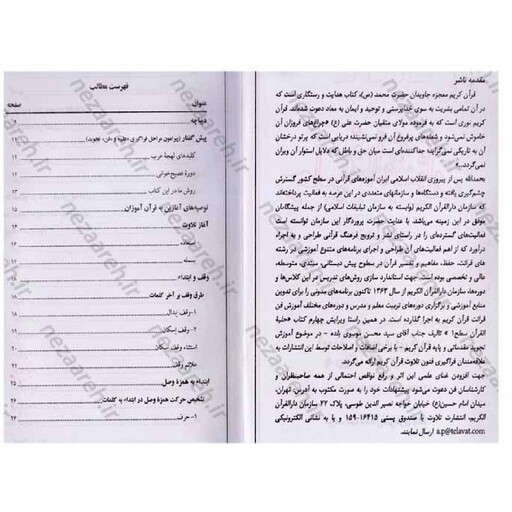 مقدمه ناشر
قرآن کریم معجزه جاویدان حضرت محمد (ص)، کتاب هدایت و رستگاری است که
در آن تمامی بشریت به سوی خداپرستی و توحید و ایمان به معاد دعوت شده‌اند. قرآن
کریم نوری است که به فرموده مولای متقیان حضرت علی (ع) «چراغ‌های فروزان آن
خاموش نمی‌شود؛ و شعله‌های پرفروغ آن فرو نمی‌نشیند؛ دریایی است که پرتو درخشان
آن به تاریکی نمی‌گراید؛ جداکننده‌ای است میان حق و باطل که دلایل استوار آن ویران
نمی‌گردد...»
بحمدالله پس از پیروزی انقلاب اسلامی ایران آموزه‌های قرآنی در سطح کشور گسترش
چشم‌گیری یافته و دستگاه‌ها و سازمانهای متعددی در این عرصه به فعالیت پرداخته‌اند
که سازمان دارالقرآن الکریم (وابسته به سازمان تبلیغات اسلامی) از جمله پیشگامان
موفق در این زمینه می‌باشد. با عنایت حضرت پروردگار این سازمان توانسته است
فعالیت‌های گسترده‌ای را در راستای نشر و ترویج فرهنگ قرآنی طراحی و به اجرا
درآورد که از اهم فعالیت‌های آن طراحی و اجرای برنامه‌های متنوع آموزشی در رشته
های قرائت، حفظ، مفاهیم و تفسیر قرآن در سطوح پیش دبستانی، مبتدی، متوسطه،
عالی و تخصصی بوده است. جهت استاندارد سازی روش‌های تدریس در این کلاس‌ها و
سازمان دارالقرآن الکریم از سال ۱۳۶۳ تاکنون برنامه‌های مدونی را برای تدوین
منابع آموزشی و برگزاری دوره‌های تربیت معلم و مدرس و دوره‌های مختلف آموزش فن
قرائت قرآن کریم به اجرا گذارده است. در همین راستا ویرایش چهارم کتاب «حلیة
القرآن سطح۱» تالیف جناب آقای سید محسن موسوی بلده - در موضوع آموزش
تجوید مقدماتی و پایه قرآن کریم - با برخی اضافات و اصلاحات توسط این انتشارات به
علاقه‌مندان فراگیری فنون تلاوت قرآن کریم ارائه می‌گردد.
جهت افزودن غنای علمی این اثر و رفع نواقص احتمالی از همه صاحبنظران و
کارشناسان فن دعوت می‌شود پیشنهادات خود را به صورت مکتوب به آدرس، تهران،
میدان امام حسین(ع) خیابان خواجه نصیر الدین طوسی، پلاک ۲۲ سازمان دارالقرآن
الکریم، انتشارت تلاوت یا صندوق پستی ۱۶۴۱۵-۱۵۹ و یا نشانی الکترونیکی
a.p@telavat.com ارسال نمایند.
فهرست مطالب
عنوان صفحه
دیباچه ۹
پیش گفتار (پیرامون مراحل فراگیری «علم» و «فن» تجوید) ۱۱
کلیدهای لهجهٔ عرب ۱۱
دورهٔ فصیح‌خوانی ۱۲
روش ما در این کتاب
توصیه‌های آغازین به قرآن آموزان
آغاز تلاوت ۱۶
استعاذه ۱۶
بسمله
وقف و ابتداء
طرق وقف بر آخر کلمات ۱۸
۱-وقف ابدال
۲-وقف إسکان
استثناء وقف إسکان
علائم وقف ۲۲
ابتداء به همزهٔ وصل ۲۵
تشخیص حرکت همزهٔ وصل در ابتداء به کلمات ۲۶
۱-حرف ۲۶
nezaareh.ir